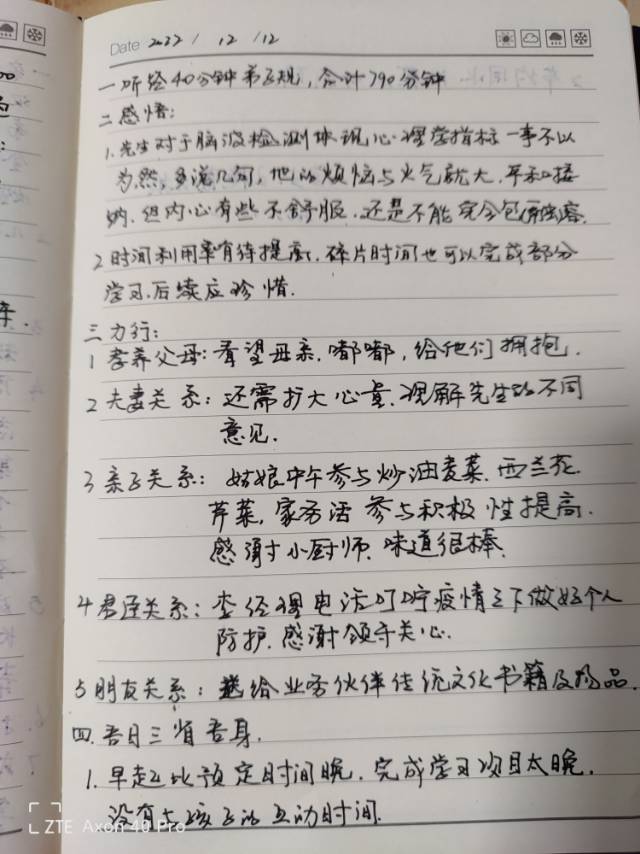 Date 2022 / 12 / 12
一 听经40分钟 弟子规, 合计790分钟
二 感悟:
1. 先生对于脑波检测体现心理学指标一事不以
为然, 多说几句, 他的烦恼与火气就大. 平和接
纳. 但内心有些不舒服. 还是不能完全包容.
2 时间利用率有待提高, 碎片时间也可以完成部分
学习. 后续应珍惜.
三 力行:
1 孝养父母: 看望母亲. 嘟嘟, 给他们拥抱.
2 夫妻关系: 还需扩大心量. 理解先生的不同
意见.
3 亲子关系: 姑娘中午参与炒油麦菜. 西兰花.
芹菜, 家务活 参与积极性提高.
感谢小厨师. 味道很棒.
4 君臣关系: 李经理电话叮咛疫情之下做好个人
防护. 感谢领导关心.
5 朋友关系: 送给业务伙伴传统文化书籍及物品.
四. 吾日三省吾身.
1. 早起比预定时间晚. 完成学习项目太晚.
没有与孩子的互动时间.
ZTE Axon 40 Pro